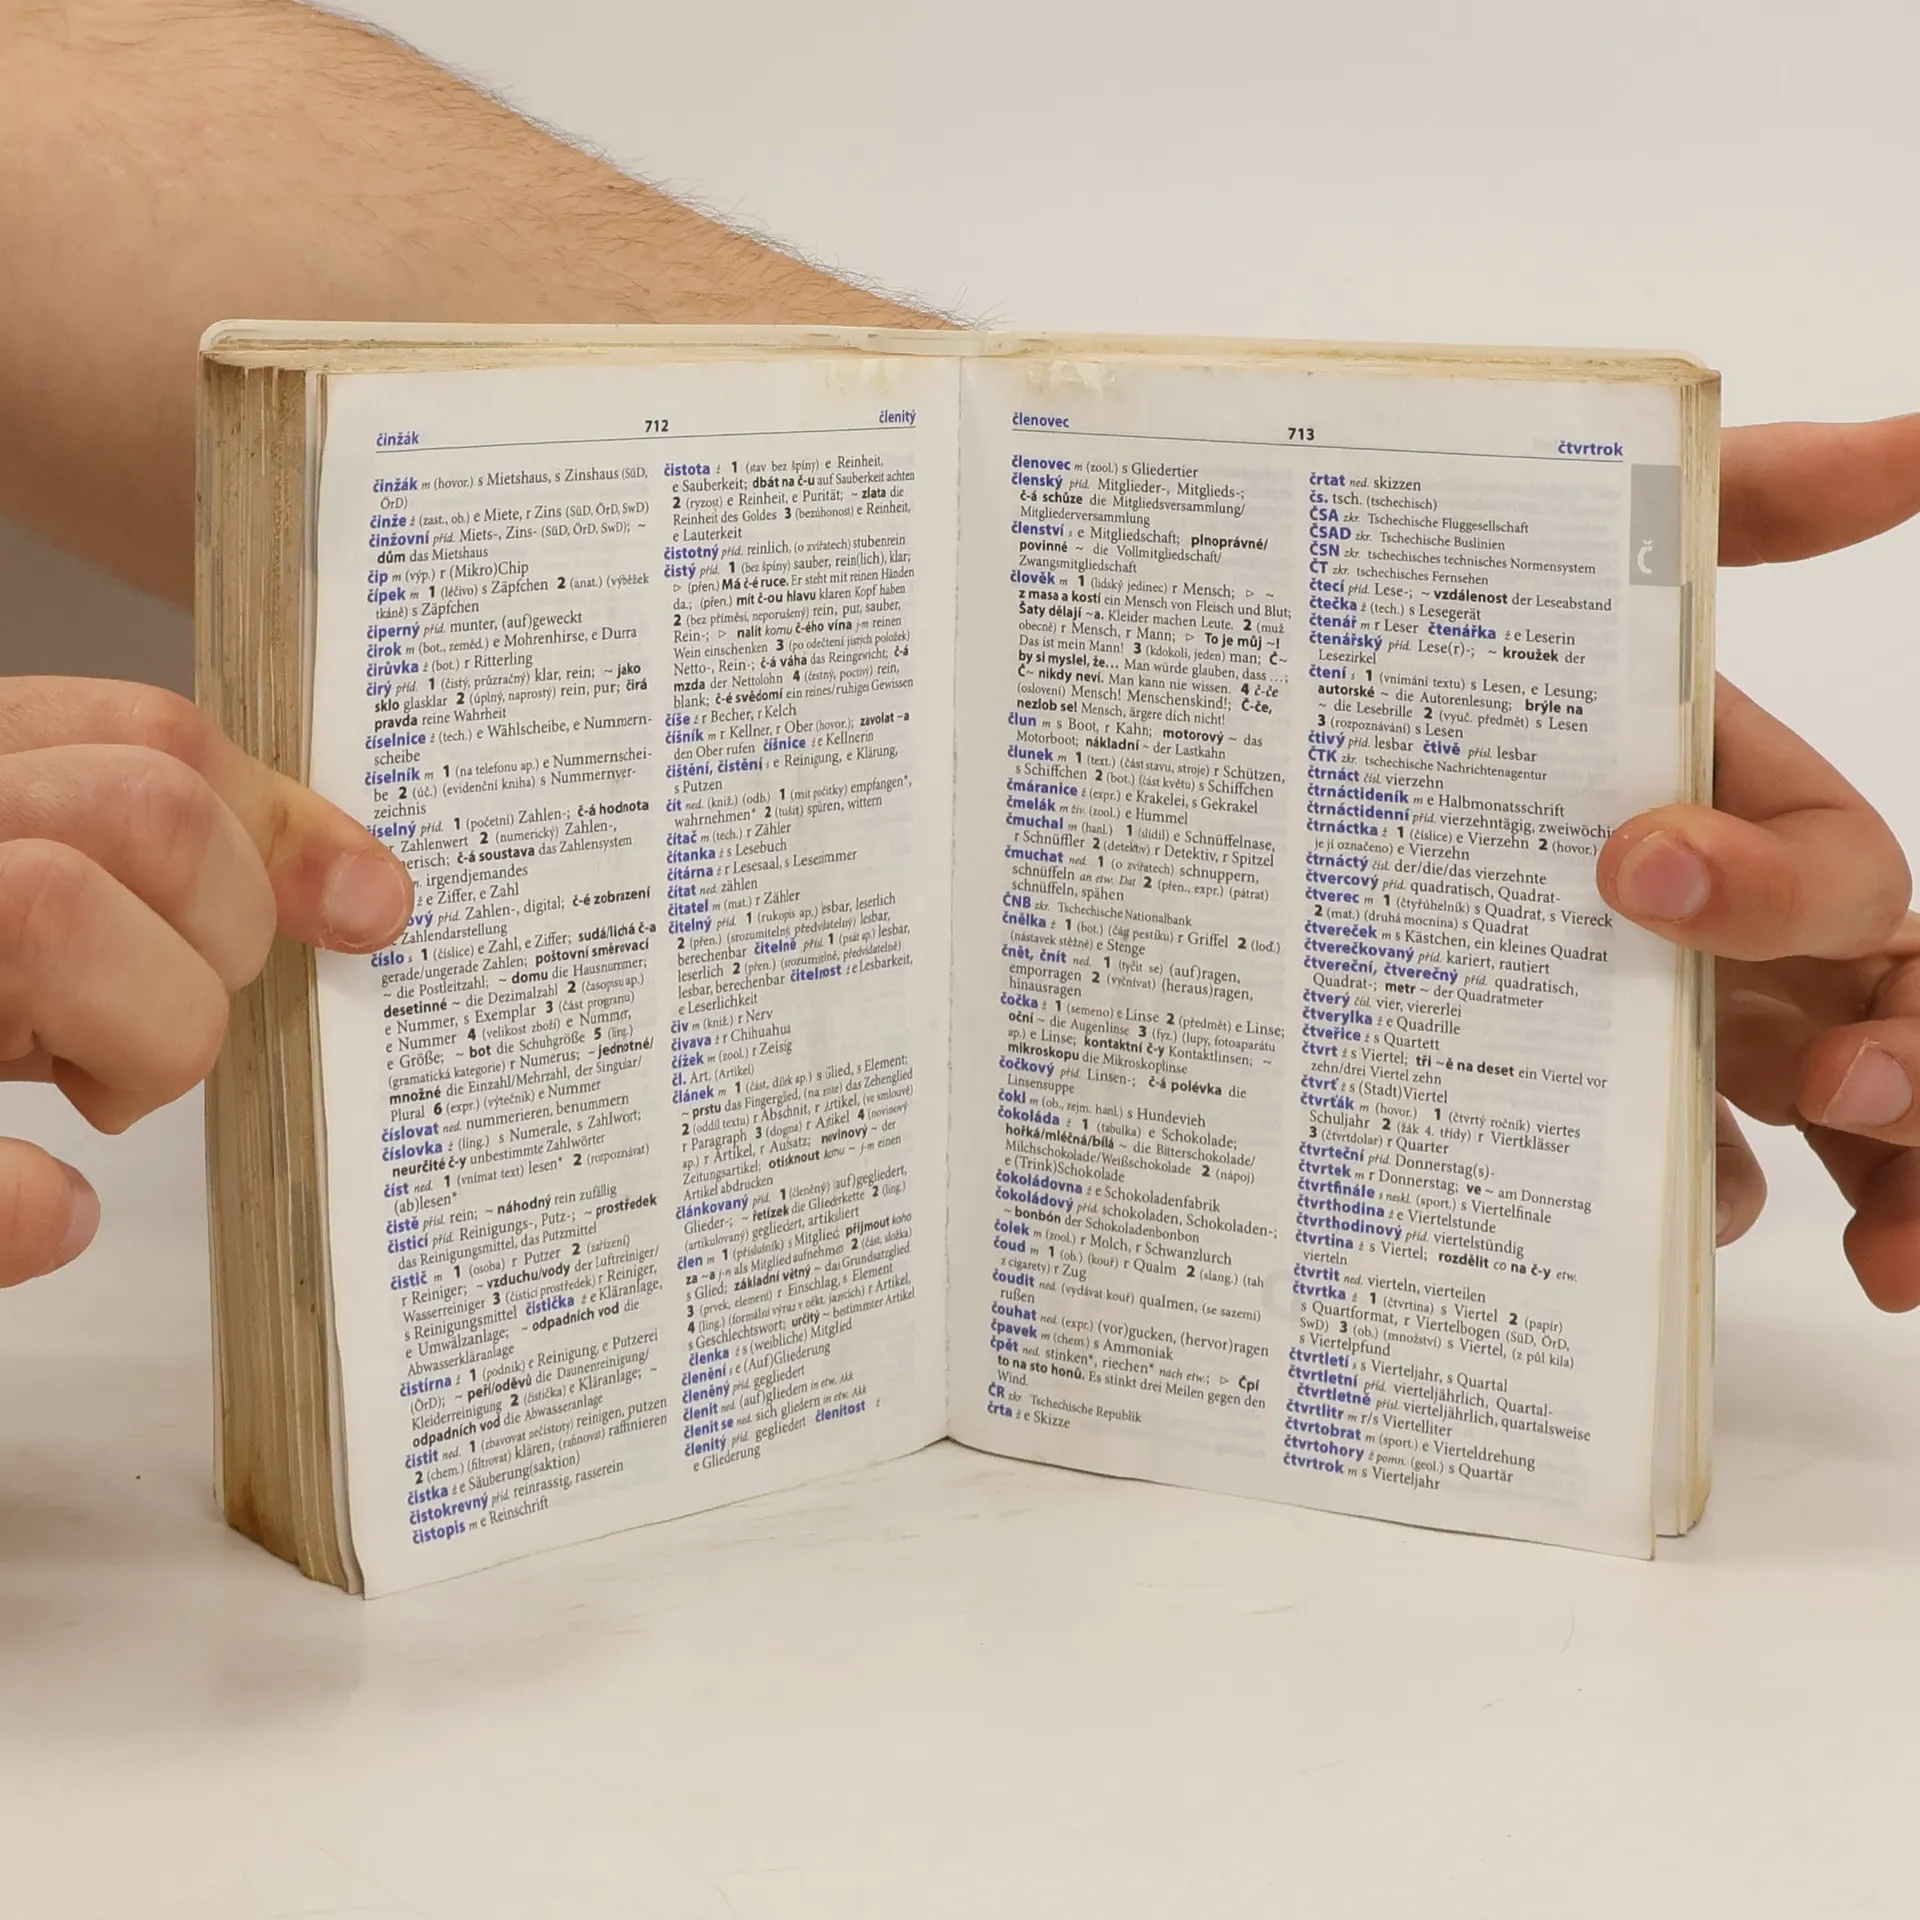 činžák 712 členitý
činžák m (hovor.) s Mietshaus, s Zinshaus (SüD,
ÖrD)
činže ž (zast., ob.) e Miete, r Zins (SüD, ÖrD, SwD)
činžovní příd. Miets-, Zins- (SüD, ÖrD, SwD); ~
dům das Mietshaus
čip m (výp.) r (Mikro)Chip
čípek m 1 (léčivo) s Zäpfchen 2 (anat.) (výběžek
tkáně) s Zäpfchen
čiperný příd. munter, (auf)geweckt
čirok m (bot., zeměd.) e Mohrenhirse, e Durra
čirůvka ž (bot.) r Ritterling
čirý příd. 1 (čistý, průzračný) klar, rein; ~ jako
sklo glasklar 2 (úplný, naprostý) rein, pur; čirá
pravda reine Wahrheit
číselnice ž (tech.) e Wählscheibe, e Nummern-
scheibe
číselník m 1 (na telefonu ap.) e Nummernschei-
be 2 (úč.) (evidenční kniha) s Nummernver-
zeichnis
číselný příd. 1 (početní) Zahlen-; č-á hodnota
r Zahlenwert 2 (numerický) Zahlen-,
erisch; č-á soustava das Zahlensystem
irgendjemandes
ž e Ziffer, e Zahl
ový příd. Zahlen-, digital; č-é zobrazení
Zahlendarstellung
číslo s 1 (číslice) e Zahl, e Ziffer; sudá/lichá č-a
gerade/ungerade Zahlen; poštovní směrovací
~ die Postleitzahl; ~ domu die Hausnummer;
desetinné ~ die Dezimalzahl 2 (časopisu ap.)
e Nummer, s Exemplar 3 (část programu)
e Nummer 4 (velikost zboží) e Nummer,
e Größe; ~ bot die Schuhgröße 5 (ling.)
(gramatická kategorie) r Numerus; ~ jednotné/
množné die Einzahl/Mehrzahl, der Singular/
Plural 6 (expr.) (výtečník) e Nummer
číslovat ned. nummerieren, benummern
číslovka ž (ling.) s Numerale, s Zahlwort;
neurčité č-y unbestimmte Zahlwörter
číst ned. 1 (vnímat text) lesen* 2 (rozpoznávat)
(ab)lesen*
čistě přísl. rein; ~ náhodný rein zufällig
čisticí příd. Reinigungs-, Putz-; ~ prostředek
das Reinigungsmittel, das Putzmittel
čistič m 1 (osoba) r Putzer 2 (zařízení)
r Reiniger; ~ vzduchu/vody der Luftreiniger/
Wasserreiniger 3 (čisticí prostředek) r Reiniger,
s Reinigungsmittel čistička ž e Kläranlage,
e Umwälzanlage; ~ odpadních vod die
Abwasserkläranlage
čistírna ž 1 (podnik) e Reinigung, e Putzerei
(ÖrD); ~ peří/oděvů die Daunenreinigung/
Kleiderreinigung 2 (čistička) e Kläranlage; ~
odpadních vod die Abwasseranlage
čistit ned. 1 (zbavovat nečistoty) reinigen, putzen
2 (chem.) (filtrovat) klären, (rafinovat) raffinieren
čistka ž e Säuberung(saktion)
čistokrevný příd. reinrassig, rasserein
čistopis m e Reinschrift
čistota ž 1 (stav bez špíny) e Reinheit,
e Sauberkeit; dbát na č-u auf Sauberkeit achten
2 (ryzost) e Reinheit, e Purität; ~ zlata die
Reinheit des Goldes 3 (bezúhonost) e Reinheit,
e Lauterkeit
čistotný příd. reinlich, (o zvířatech) stubenrein
čistý příd. 1 (bez špíny) sauber, rein(lich), klar;
▷ (přen.) Má č-é ruce. Er steht mit reinen Händen
da.; (přen.) mít č-ou hlavu klaren Kopf haben
2 (bez příměsi, neporušený) rein, pur, sauber,
Rein-; ▷ nalít komu č-ého vína j-m reinen
Wein einschenken 3 (po odečtení jistých položek)
Netto-, Rein-; č-á váha das Reingewicht; č-á
mzda der Nettolohn 4 (čestný, poctivý) rein,
blank; č-é svědomí ein reines/ruhiges Gewissen
číše ž r Becher, r Kelch
číšník m r Kellner, r Ober (hovor.); zavolat ~a
den Ober rufen číšnice ž e Kellnerin
čištění, čistění s e Reinigung, e Klärung,
s Putzen
čít ned. (kniž.) (odb.) 1 (mít počitky) empfangen*,
wahrnehmen* 2 (tušit) spüren, wittern
čítač m (tech.) r Zähler
čítanka ž s Lesebuch
čítárna ž r Lesesaal, s Lesezimmer
čítat ned. zählen
čitatel m (mat.) r Zähler
čitelný příd. 1 (rukopis ap.) lesbar, leserlich
2 (přen.) (srozumitelný, předvídatelný) lesbar,
berechenbar čitelně přísl. 1 (psát ap.) lesbar,
leserlich 2 (přen.) (srozumitelně, předvídatelně)
lesbar, berechenbar čitelnost ž e Lesbarkeit,
e Leserlichkeit
čiv m (kniž.) r Nerv
čivava ž r Chihuahua
čížek m (zool.) r Zeisig
čl. Art. (Artikel)
článek m 1 (část, dílek ap.) s Glied, s Element;
~ prstu das Fingerglied, (na noze) das Zehenglied
2 (oddíl textu) r Abschnit, r Artikel, (ve smlouvě)
r Paragraph 3 (dogma) r Artikel 4 (novinový
ap.) r Artikel, r Aufsatz; novinový ~ der
Zeitungsartikel; otisknout komu ~ j-m einen
Artikel abdrucken
článkovaný příd. 1 (členěný) (auf)gegliedert,
Glieder-; ~ řetízek die Gliederkette 2 (ling.)
(artikulovaný) gegliedert, artikuliert
člen m 1 (příslušník) s Mitglied; přijmout koho
za ~a j-n als Mitglied aufnehmen 2 (část, složka)
s Glied; základní větný ~ das Grundsatzglied
3 (prvek, element) r Einschlag, s Element
4 (ling.) (formální výraz v někt. jazycích) r Artikel,
s Geschlechtswort; určitý ~ bestimmter Artikel
členka ž s (weibliche) Mitglied
členění s e (Auf)Gliederung
členěný příd. gegliedert
členit ned. (auf)gliedern in etw. Akk
členit se ned. sich gliedern in etw. Akk
členitý příd. gegliedert členitost ž
e Gliederung
členovec 713 čtvrtrok
členovec m (zool.) s Gliedertier
členský příd. Mitglieder-, Mitglieds-;
č-á schůze die Mitgliedsversammlung/
Mitgliederversammlung
členství s e Mitgliedschaft; plnoprávné/
povinné ~ die Vollmitgliedschaft/
Zwangsmitgliedschaft
člověk m 1 (lidský jedinec) r Mensch; ▷ ~
z masa a kostí ein Mensch von Fleisch und Blut;
Šaty dělají ~a. Kleider machen Leute. 2 (muž
obecně) r Mensch, r Mann; ▷ To je můj ~!
Das ist mein Mann! 3 (kdokoli, jeden) man; Č~
by si myslel, že… Man würde glauben, dass …;
Č~ nikdy neví. Man kann nie wissen. 4 č-če
(oslovení) Mensch! Menschenskind!; Č-če,
nezlob se! Mensch, ärgere dich nicht!
člun m s Boot, r Kahn; motorový ~ das
Motorboot; nákladní ~ der Lastkahn
člunek m 1 (text.) (část stavu, stroje) r Schützen,
s Schiffchen 2 (bot.) (část květu) s Schiffchen
čmáranice ž (expr.) e Krakelei, s Gekrakel
čmelák m živ. (zool.) e Hummel
čmuchal m (hanl.) 1 (slídil) e Schnüffelnase,
r Schnüffler 2 (detektiv) r Detektiv, r Spitzel
čmuchat ned. 1 (o zvířatech) schnuppern,
schnüffeln an etw. Dat 2 (přen., expr.) (pátrat)
schnüffeln, spähen
ČNB zkr. Tschechische Nationalbank
čnělka ž 1 (bot.) (část pestíku) r Griffel 2 (loď.)
(nástavek stěžně) e Stenge
čnět, čnít ned. 1 (tyčit se) (auf)ragen,
emporragen 2 (vyčnívat) (heraus)ragen,
hinausragen
čočka ž 1 (semeno) e Linse 2 (předmět) e Linse;
oční ~ die Augenlinse 3 (fyz.) (lupy, fotoaparátu
ap.) e Linse; kontaktní č-y Kontaktlinsen; ~
mikroskopu die Mikroskoplinse
čočkový příd. Linsen-; č-á polévka die
Linsensuppe
čokl m (ob., zejm. hanl.) s Hundevieh
čokoláda ž 1 (tabulka) e Schokolade;
hořká/mléčná/bílá ~ die Bitterschokolade/
Milchschokolade/Weißschokolade 2 (nápoj)
e (Trink)Schokolade
čokoládovna ž e Schokoladenfabrik
čokoládový příd. schokoladen, Schokoladen-;
~ bonbón der Schokoladenbonbon
čolek m (zool.) r Molch, r Schwanzlurch
čoud m 1 (ob.) (kouř) r Qualm 2 (slang.) (tah
z cigarety) r Zug
čoudit ned. (vydávat kouř) qualmen, (se sazemi)
rußen
čouhat ned. (expr.) (vor)gucken, (hervor)ragen
čpavek m (chem.) s Ammoniak
čpět ned. stinken*, riechen* nach etw.; ▷ Čpí
to na sto honů. Es stinkt drei Meilen gegen den
Wind.
ČR zkr. Tschechische Republik
črta ž e Skizze
črtat ned. skizzen
čs. tsch. (tschechisch)
ČSA zkr. Tschechische Fluggesellschaft
ČSAD zkr. Tschechische Buslinien
ČSN zkr. tschechisches technisches Normensystem
ČT zkr. tschechisches Fernsehen
čtecí příd. Lese-; ~ vzdálenost der Leseabstand
čtečka ž (tech.) s Lesegerät
čtenář m r Leser čtenářka ž e Leserin
čtenářský příd. Lese(r)-; ~ kroužek der
Lesezirkel
čtení s 1 (vnímání textu) s Lesen, e Lesung;
autorské ~ die Autorenlesung; brýle na
~ die Lesebrille 2 (vyuč. předmět) s Lesen
3 (rozpoznávání) s Lesen
čtivý příd. lesbar čtivě přísl. lesbar
ČTK zkr. tschechische Nachrichtenagentur
čtrnáct čísl. vierzehn
čtrnáctideník m e Halbmonatsschrift
čtrnáctidenní příd. vierzehntägig, zweiwöchi
čtrnáctka ž 1 (číslice) e Vierzehn 2 (hovor.)
je jí označeno) e Vierzehn
čtrnáctý čísl. der/die/das vierzehnte
čtvercový příd. quadratisch, Quadrat-
čtverec m 1 (čtyřúhelník) s Quadrat, s Viereck
2 (mat.) (druhá mocnina) s Quadrat
čtvereček m s Kästchen, ein kleines Quadrat
čtverečkovaný příd. kariert, rautiert
čtvereční, čtverečný příd. quadratisch,
Quadrat-; metr ~ der Quadratmeter
čtverý čísl. vier, viererlei
čtverylka ž e Quadrille
čtveřice ž s Quartett
čtvrt ž s Viertel; tři ~ě na deset ein Viertel vor
zehn/drei Viertel zehn
čtvrť ž s (Stadt)Viertel
čtvrťák m (hovor.) 1 (čtvrtý ročník) viertes
Schuljahr 2 (žák 4. třídy) r Viertklässer
3 (čtvrtdolar) r Quarter
čtvrteční příd. Donnerstag(s)-
čtvrtek m r Donnerstag; ve ~ am Donnerstag
čtvrtfinále s neskl. (sport.) s Viertelfinale
čtvrthodina ž e Viertelstunde
čtvrthodinový příd. viertelstündig
čtvrtina ž s Viertel; rozdělit co na č-y etw.
vierteln
čtvrtit ned. vierteln, vierteilen
čtvrtka ž 1 (čtvrtina) s Viertel 2 (papír)
s Quartformat, r Viertelbogen (SüD, ÖrD,
SwD) 3 (ob.) (množství) s Viertel, (z půl kila)
s Viertelpfund
čtvrtletí s s Vierteljahr, s Quartal
čtvrtletní příd. vierteljährlich, Quartal-
čtvrtletně přísl. vierteljährlich, quartalsweise
čtvrtlitr m r/s Viertelliter
čtvrtobrat m (sport.) e Vierteldrehung
čtvrtohory ž pomn. (geol.) s Quartär
čtvrtrok m s Vierteljahr
Č